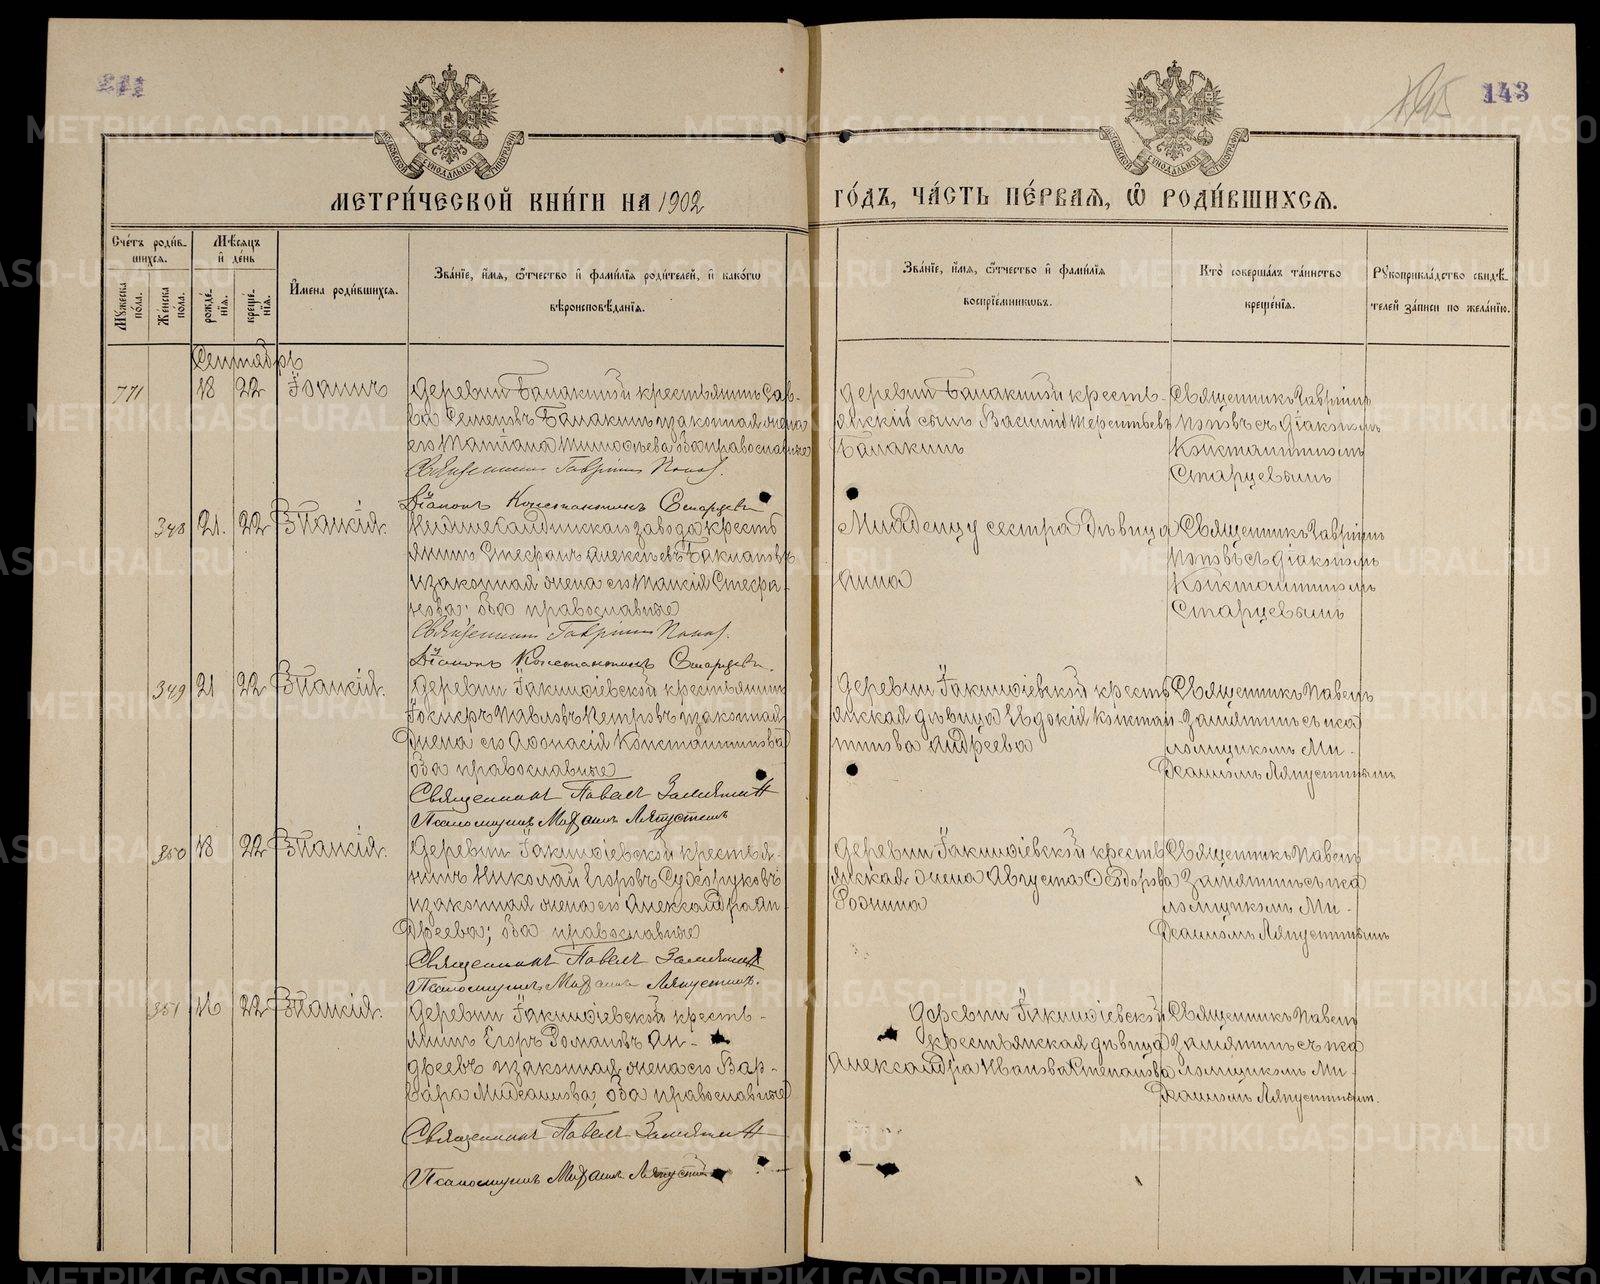 143
МОСКОВСКОЙ СИНОДАЛЬНОЙ ТИПОГРАФІИ
МОСКОВСКОЙ СИНОДАЛЬНОЙ ТИПОГРАФІИ
МЕТРИ́ЧЕСКОЙ КНИ́ГИ НА 1902
ГО́ДЪ, ЧА́СТЬ ПЕ́РВАЯ, Ѽ РОДИ́ВШИХСЯ.
Сче́тъ роди́в-
шихся.
Мꙋжеска пола.
Же́нска пола.
Мѣ́сяцъ
и҆ де́нь
рожде́-
нїя.
креще́-
нїя.
И҆мена роди́вшихся.
Зва́нїе, и҆́мя, ѻ҆́тчество и҆ фами́лїя роди́телей, и҆ како́гѡ
вѣроисповѣ́данїя.
Зва́нїе, и҆́мя, ѻ҆́тчество и҆ фами́лїя
воспрїе́мникѡвъ.
Кто̀ соверша́лъ та́инство
креще́нїя.
Рꙋкоприкла́дство свидѣ́-
телей за́писи по жела́нїю.
Сентябрь
771 18 22 Іоаннъ
деревни Балакиной крестьянинъ Сав-
ва Семеновъ Балакинъ и законная жена
его Татіана Тимофеева оба православные
Священникъ Гавріилъ Поповъ.
Діаконъ Константинъ Старцевъ
деревни Балакиной кресть-
янскій сынъ Василій Терентьевъ
Балакинъ
Священникъ Гавріилъ
Поповъ съ діакономъ
Константиномъ
Старцевымъ
348 21. 22 Таисія.
Нижнесалдинскаго завода кресть
янинъ Стефанъ Алексѣевъ Баклановъ
и законная жена его Таисія Стефа-
нова; оба православные
Священникъ Гавріилъ Поповъ.
Діаконъ Константинъ Старцевъ.
Младенцу сестра дѣвица
Анна
Священникъ Гавріилъ
Поповъ съ діакономъ
Константиномъ
Старцевымъ
349 21 22 Таисія.
деревни Іакинѳіевской крестьянинъ
Павловъ Петровъ и законная
жена его Аѳонасія Константинова
оба православные
Священникъ Павелъ Замятинъ
Псаломщикъ Михаилъ Ляпустинъ
деревни Іакинѳіевской кресть
янская дѣвица Евдокія Констан-
тинова Андреева
Священникъ Павелъ
Замятинъ съ пса
ломщикомъ Ми-
хаиломъ Ляпустинымъ
350 18 22 Таисія.
деревни Іакинѳіевской крестья-
нинъ Николай Егоровъ Сухоруковъ
и законная жена его Александра Ан-
дреева; оба православные
Священникъ Павелъ Замятинъ
Псаломщикъ Михаилъ Ляпустинъ.
деревни Іакинѳіевской кресть
янская жена Августа Ѳедорова
Роднина
Священникъ Павелъ
Замятинъ съ пса
ломщикомъ Ми-
хаиломъ Ляпустинымъ
351 16 22 Таисія.
деревни Іакинѳіевской кресть-
янинъ Егоръ Романовъ Ан-
дреевъ и законная жена его Вар-
вара Михаилова; оба православные
Священникъ Павелъ Замятинъ
Псаломщикъ Михаилъ Ляпустинъ
деревни Іакинѳіевской
крестьянская дѣвица
Александра Иванова Степанова
Священникъ Павелъ
Замятинъ съ пса
ломщикомъ Ми-
хаиломъ Ляпустинымъ.
METRIKI.GASO-URAL.RU